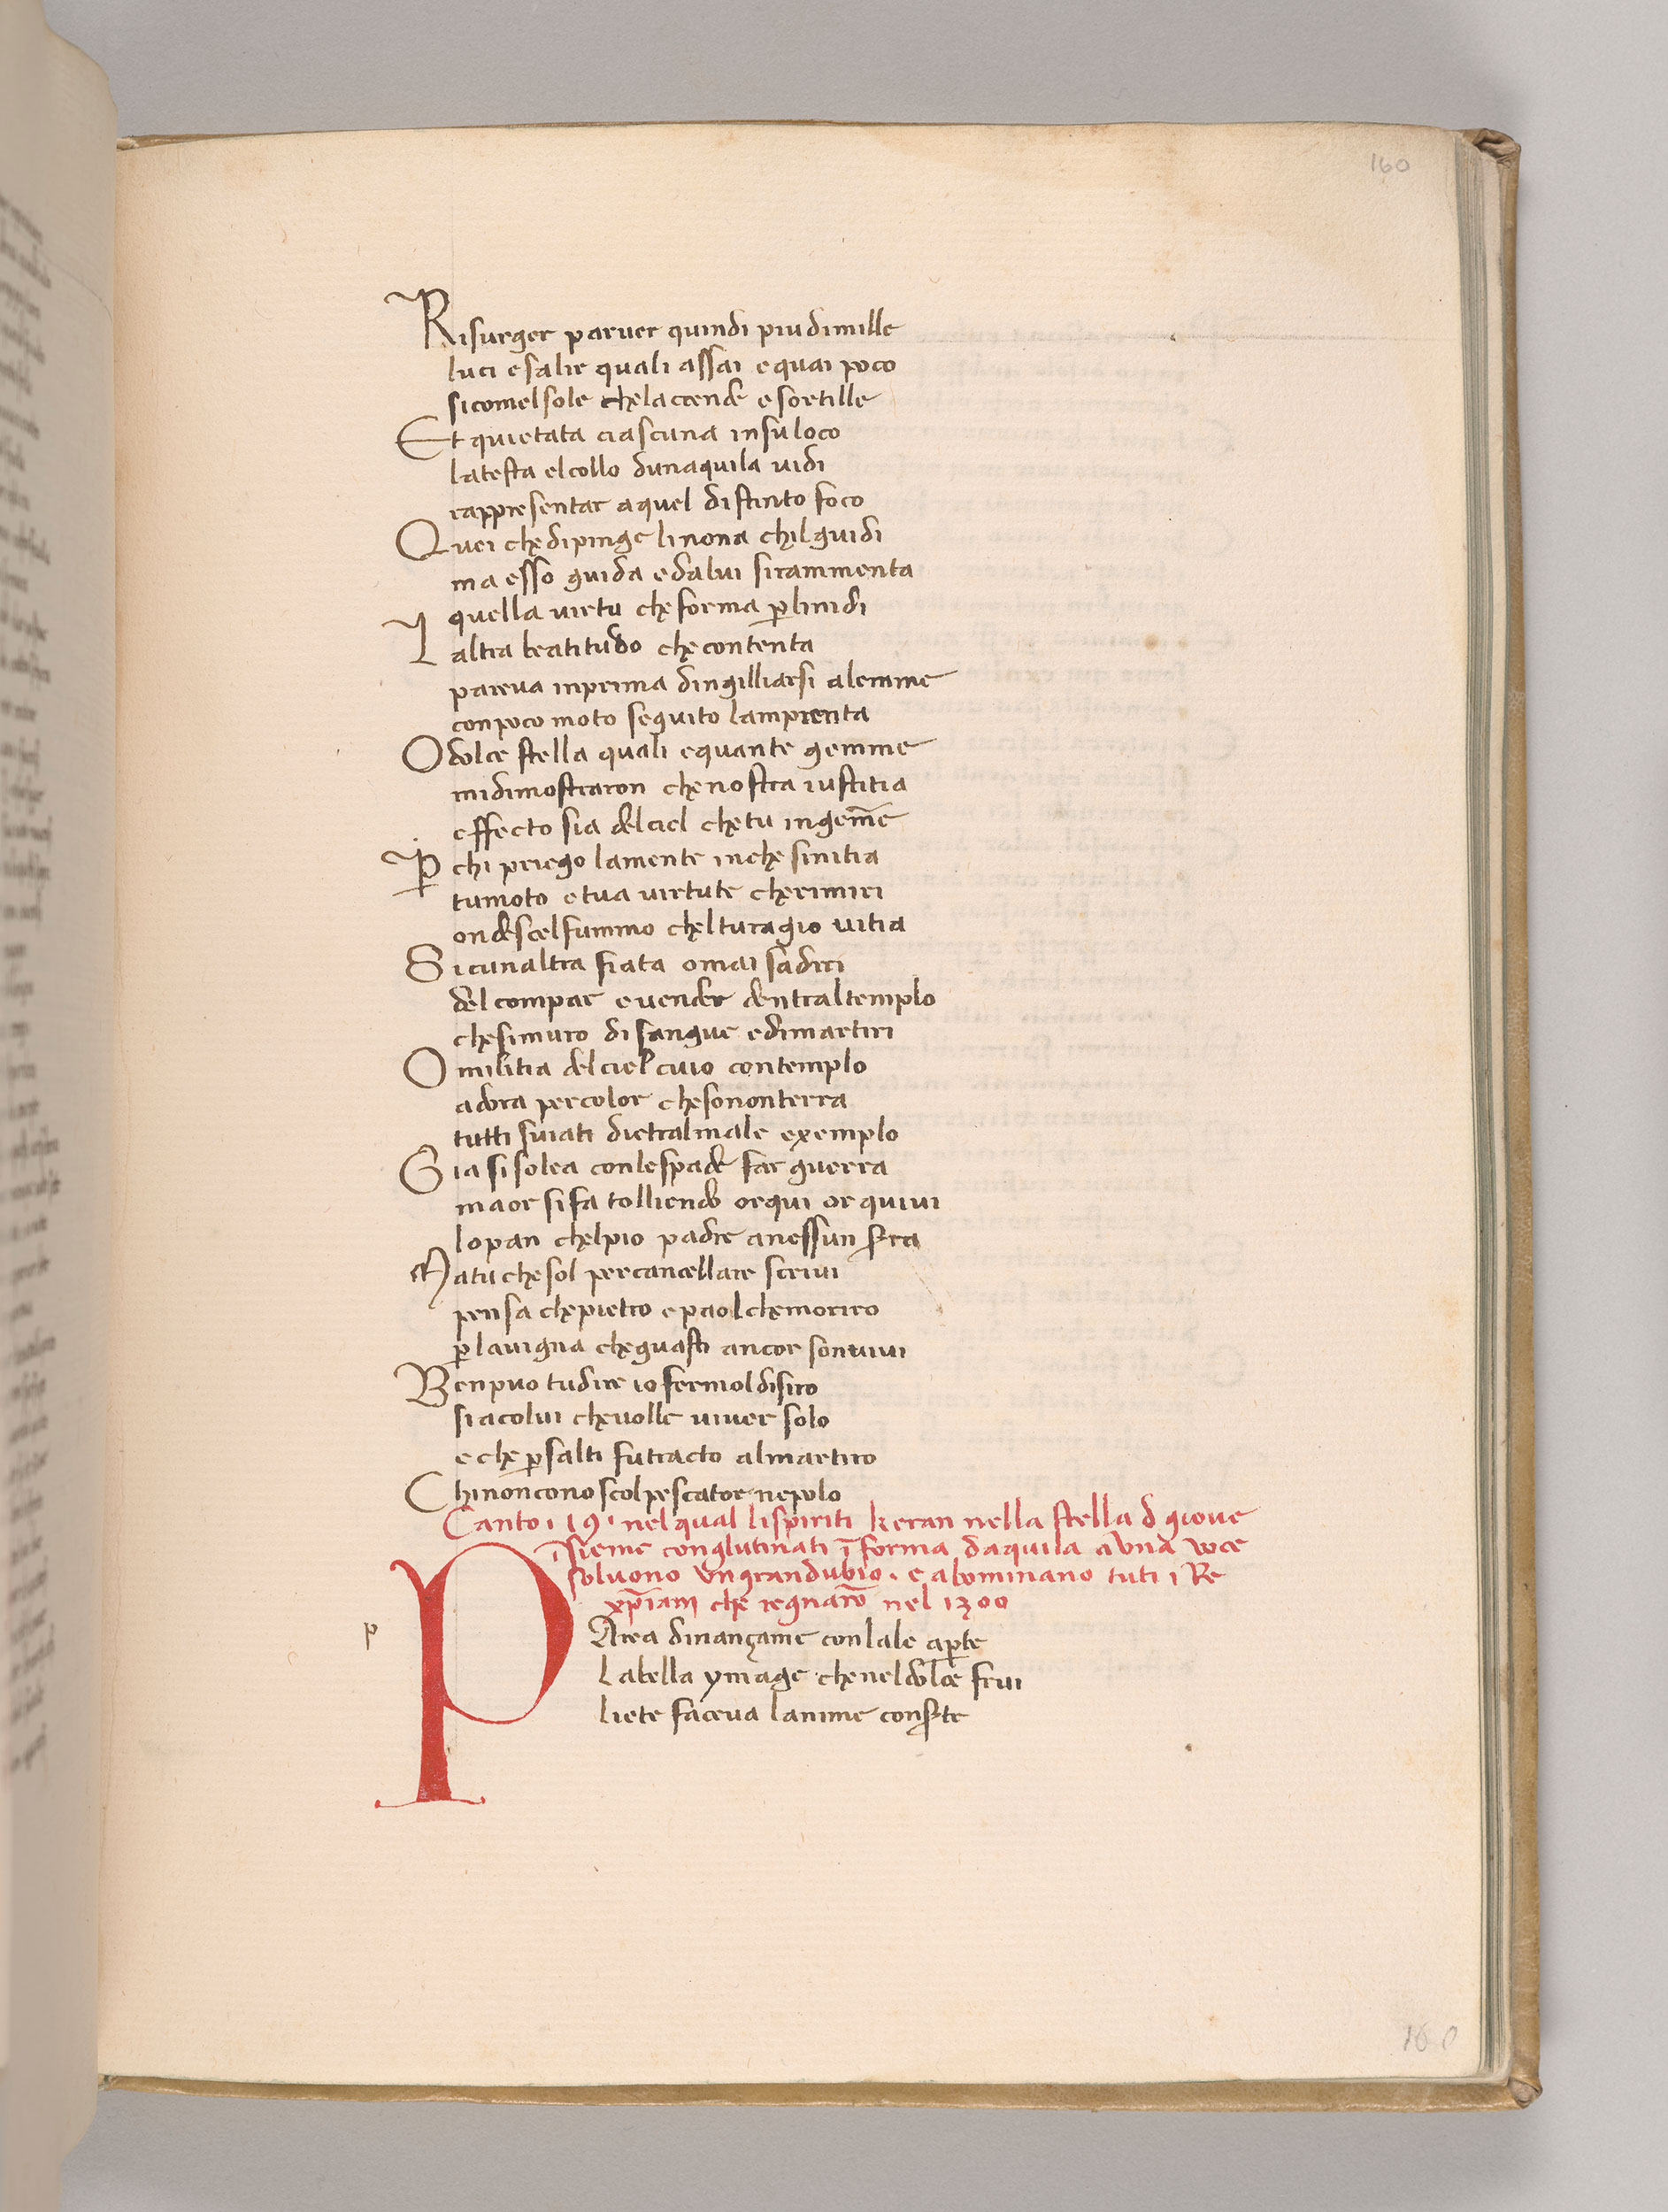 160
Risurger paruer quindi piudimille
luci esalir quali assai equai poco
sicomelsole chelaccende esortille
Et quietata ciascuna insuloco
latesta elcollo dunaquila uidi
rappresentar aquel distinto foco
Quei chedipinge linona chilguidi
ma esso guida edalui sirammenta
quella uirtu cheforma ꝑlinidi
Laltra beatitudo checontenta
pareua inprima dingilliarsi alemme
conpoco moto seguito lamprenta
Odolce stella quali equante gemme
midimostraron chenostra iustitia
effecto sia delciel chetu ingem̄e
Ꝑchi priego lamente inche sinitia
tumoto etua uirtute cherimiri
ondescelfummo chelturagio uitia
Sicunaltra fiata omai sadiri
del compar euender dentraltemplo
chesimuro disangue edimartiri
Omilitia delciel cuio contemplo
adora percolor chesononterra
tutti suiati dietralmale exemplo
Gia si solea conlespade far guerra
maor sifa tolliendo orqui or quiui
lopan chelpio padre anessun serra
Matu chesol percancellare scriui
pensa chepietro epaol chemoriro
ꝑlauigna cheguasti ancor sonuiui
Benpuo tudire io fermoldisiro
siacolui cheuolle uiuer solo
eche ꝑsalti futracto almartiro
Chinonconoscolpescator nepolo
Canto · 19 · nelqual lispiriti keran nella stella d gioue
īsieme conglutinati ī forma daquila aduna voce
soluono Ungrandubio · e abominano tuti i Re
xp̄iani che regnarō nel 1300
p
PArea dinançame conlale aꝑte
Labella ymage cheneldolce frui
liete faceua lanime conserte
160